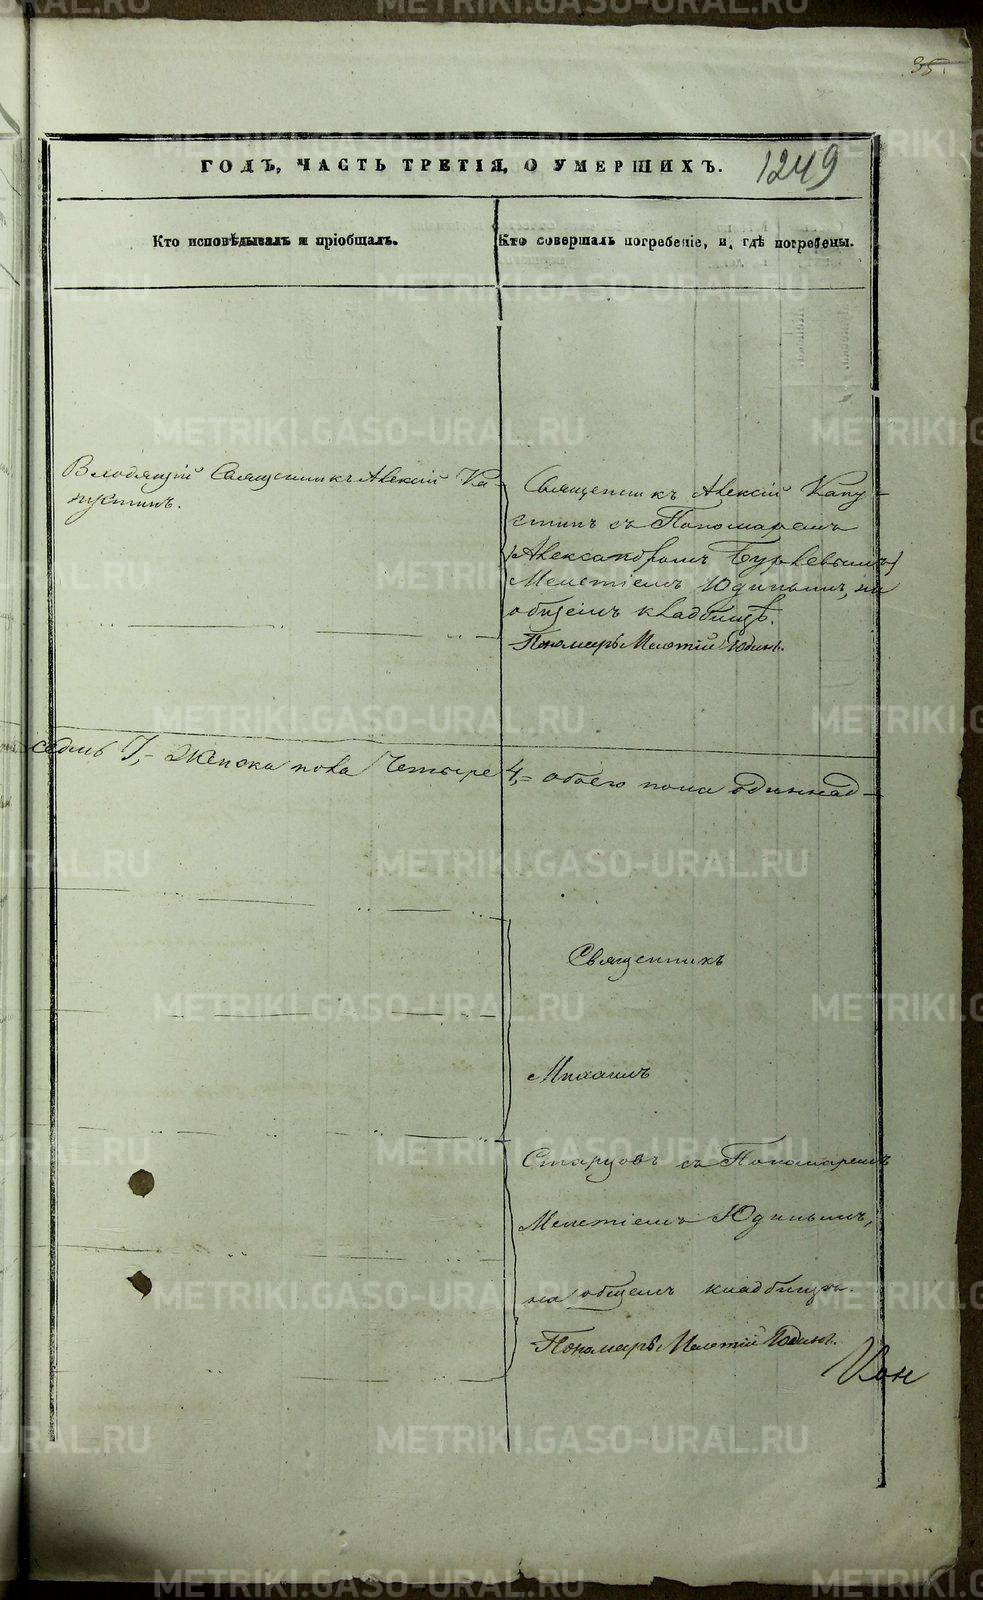 35.
ГОДЪ, ЧАСТЬ ТРЕТІЯ, О УМЕРШИХЪ.
1249
Кто исповѣдывалъ и пріобщалъ.
Кто совершалъ погребеніе, и, гдѣ погребены.
Священникъ Алексій Ка-
пустинъ.
Священникъ Алексій Капу-
стинъ съ Пономаремъ
Александромъ
Мелетіемъ Юдинымъ, на
общемъ кладбищѣ.
Пономарь Мелетій Юдинъ.
седмь 7,- Женска пола Четыре 4,= обоего пола одиннад-
Священникъ
Михаилъ
Старцовъ съ Пономаремъ
Мелетіемъ Юдинымъ,
на общемъ кладбищѣ.
Пономарь Мелетій Юдинъ.
METRIKI.GASO-URAL.RU